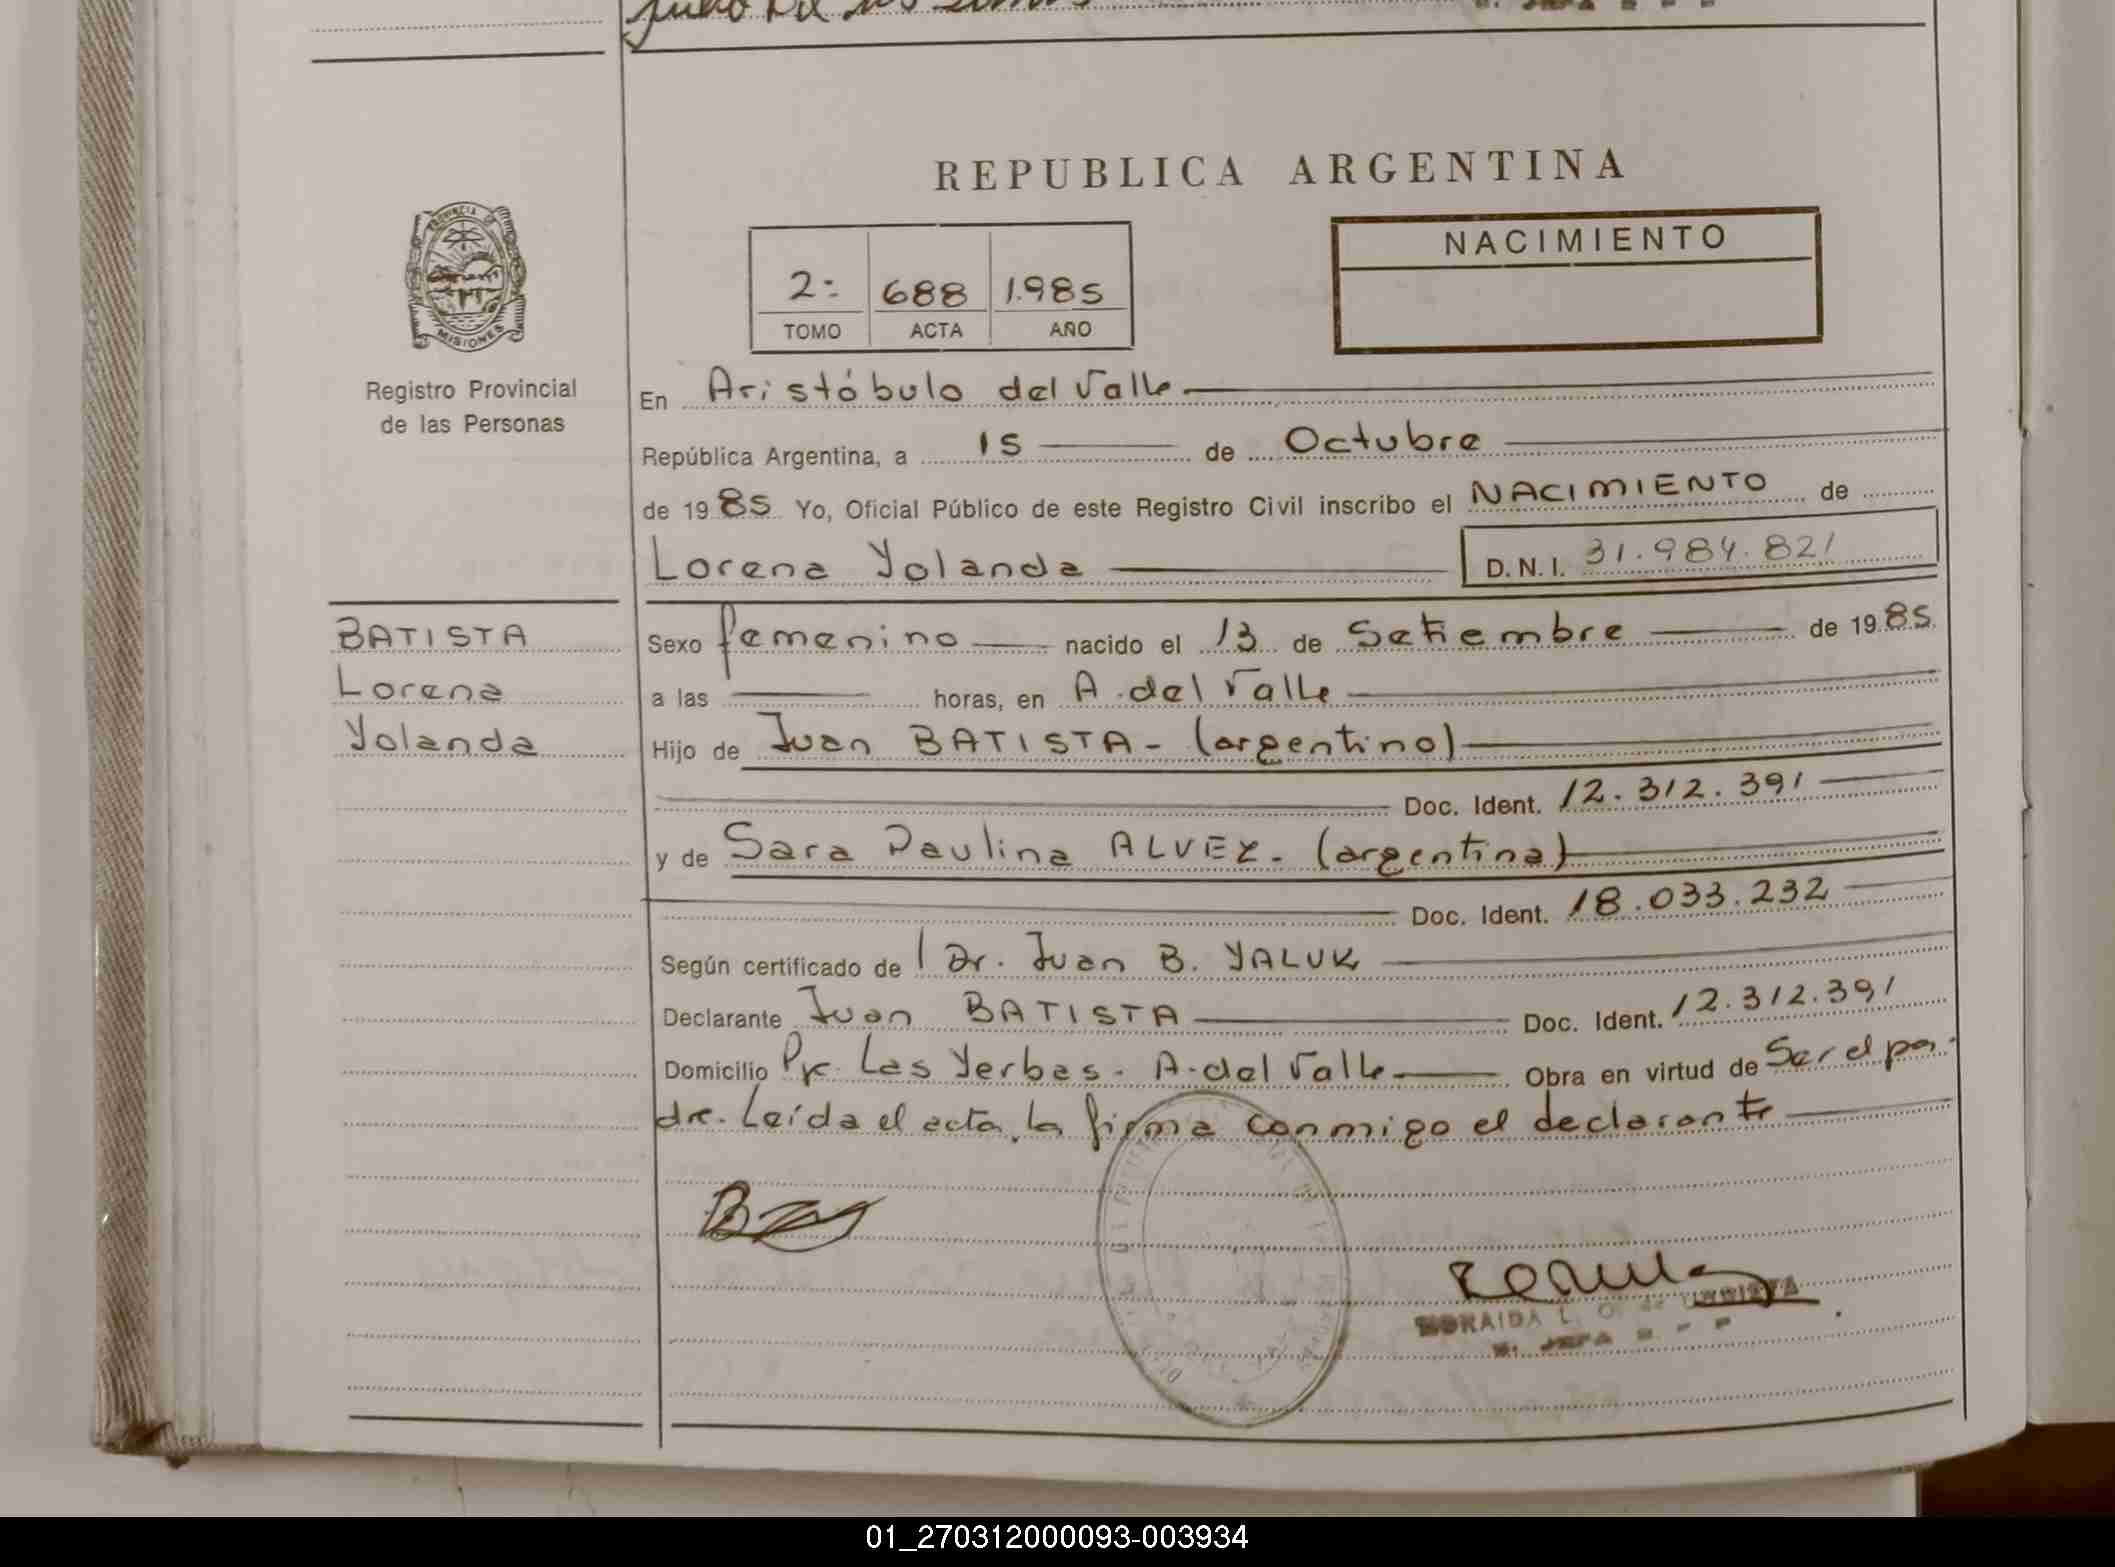 REPUBLICA ARGENTINA
PROVINCIA DE
MISIONES
Registro Provincial
de las Personas
2=
688
1.985
TOMO
ACTA
AÑO
NACIMIENTO
En Aristóbulo del Valle
República Argentina, a 15 de Octubre
de 1985 Yo, Oficial Público de este Registro Civil inscribo el NACIMIENTO de
Lorena Yolanda D.N.I. 31.984.821
BATISTA
Lorena
Yolanda
Sexo femenino nacido el 13 de Setiembre de 1985
a las horas, en A. del Valle
Hijo de Juan BATISTA - (argentino)
Doc. Ident. 12.312.391
y de Sara Paulina ALVEZ. (argentina)
Doc. Ident. 18.033.232
Según certificado de Dr. Juan B. YALUK
Declarante Juan BATISTA Doc. Ident. 12.312.391
Domicilio Las Yerbas - A. del Valle Obra en virtud de Ser el pa-
dre. Leída el acta, la firma conmigo el declarante
01_270312000093-003934